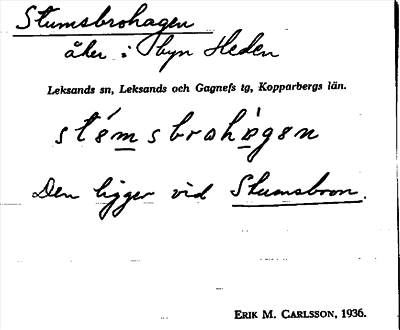 Stumsbrohagen
åker i byn Heden
Leksands sn, Leksands och Gagnefs tg, Kopparbergs län.
stémsbrohàgen
Den ligger vid Stumsbron.
ERIK M. CARLSSON, 1936.